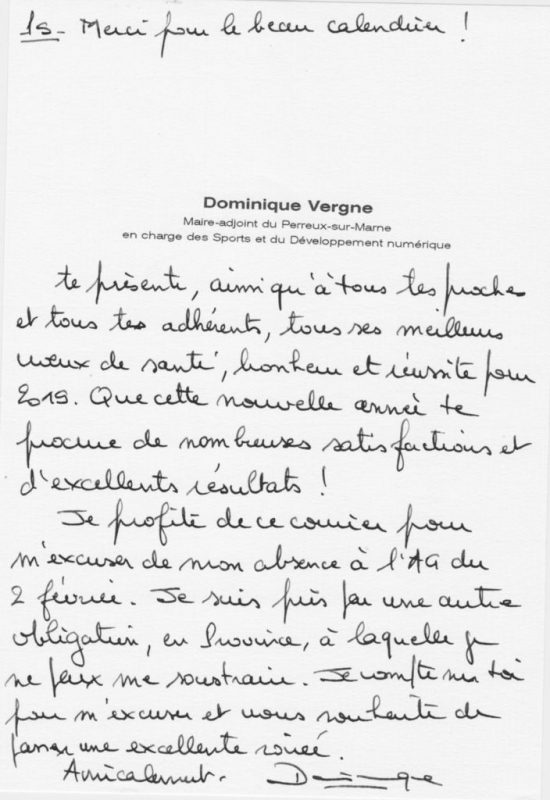 PS - Merci pour le beau calendrier !
Dominique Vergne
Maire-adjoint du Perreux-sur-Marne
en charge des Sports et du Développement numérique
te présente, ainsi qu'à tous tes proches
et tous tes adhérents, tous ses meilleurs
vœux de santé, bonheur et réussite pour
2019. Que cette nouvelle année te
procure de nombreuses satisfactions et
d'excellents résultats !
Je profite de ce courrier pour
m'excuser de mon absence à l'AG du
2 février. Je suis pris par une autre
obligation, en Province, à laquelle je
ne peux me soustraire. Je compte sur toi
pour m'excuser et vous souhaite de
passer une excellente soirée.
Amicalement. Dominique